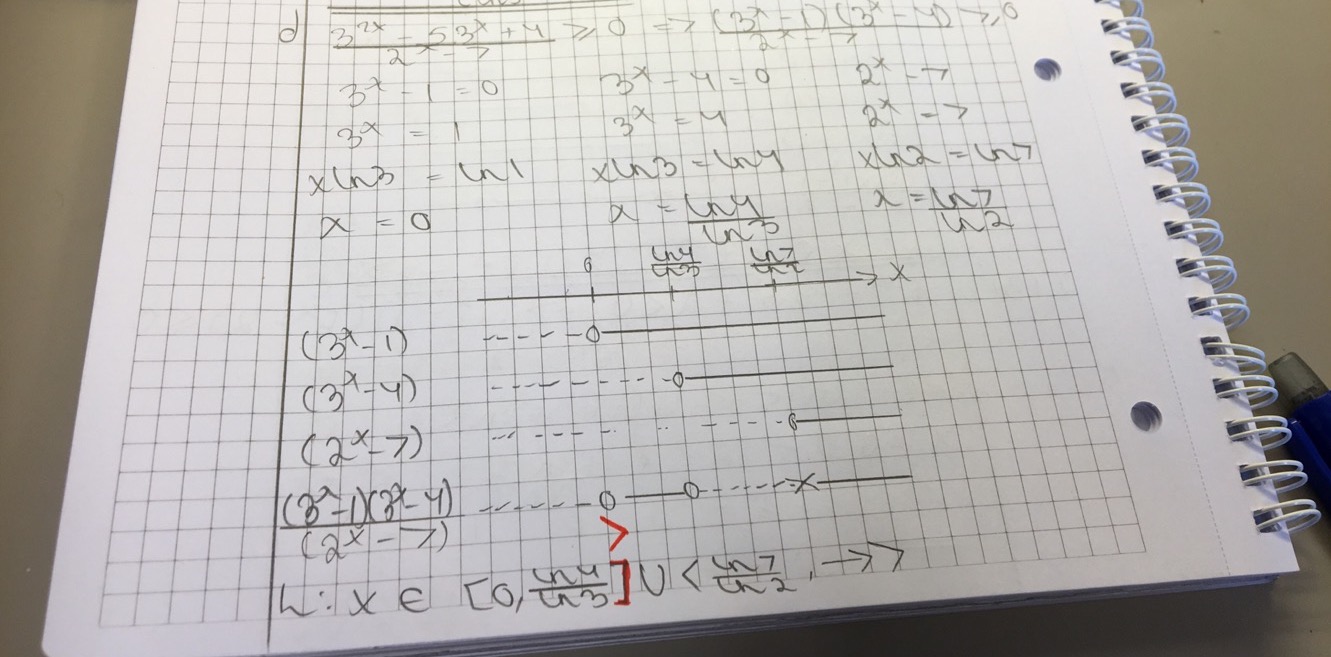 d) (3^2x - 5·3^x + 4)/(2^x - 7) ≥ 0 => (3^x - 1)(3^x - 4)/(2^x - 7) ≥ 0
3^x - 1 = 0 3^x - 4 = 0 2^x - 7
3^x = 1 3^x = 4 2^x - 7
x ln3 = ln1 x ln3 = ln4 x ln2 = ln7
x = 0 x = ln4/ln3 x = ln7/ln2
0 ln4/ln3 ln7/ln2 x
(3^x - 1)
(3^x - 4)
(2^x - 7)
(3^x - 1)(3^x - 4)/(2^x - 7)
>
L: x ∈ [0, ln4/ln3] ∪ < ln7/ln2, →>